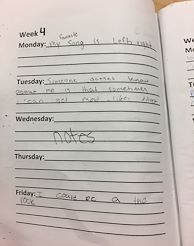 Week 4
favorite
Monday: my song is left right
Tuesday: Someone doesnt know
about me is that sometimes
i can get mad
Wednesday:
notes
Thursday:
Friday: I could be a the
rock
We
Mon